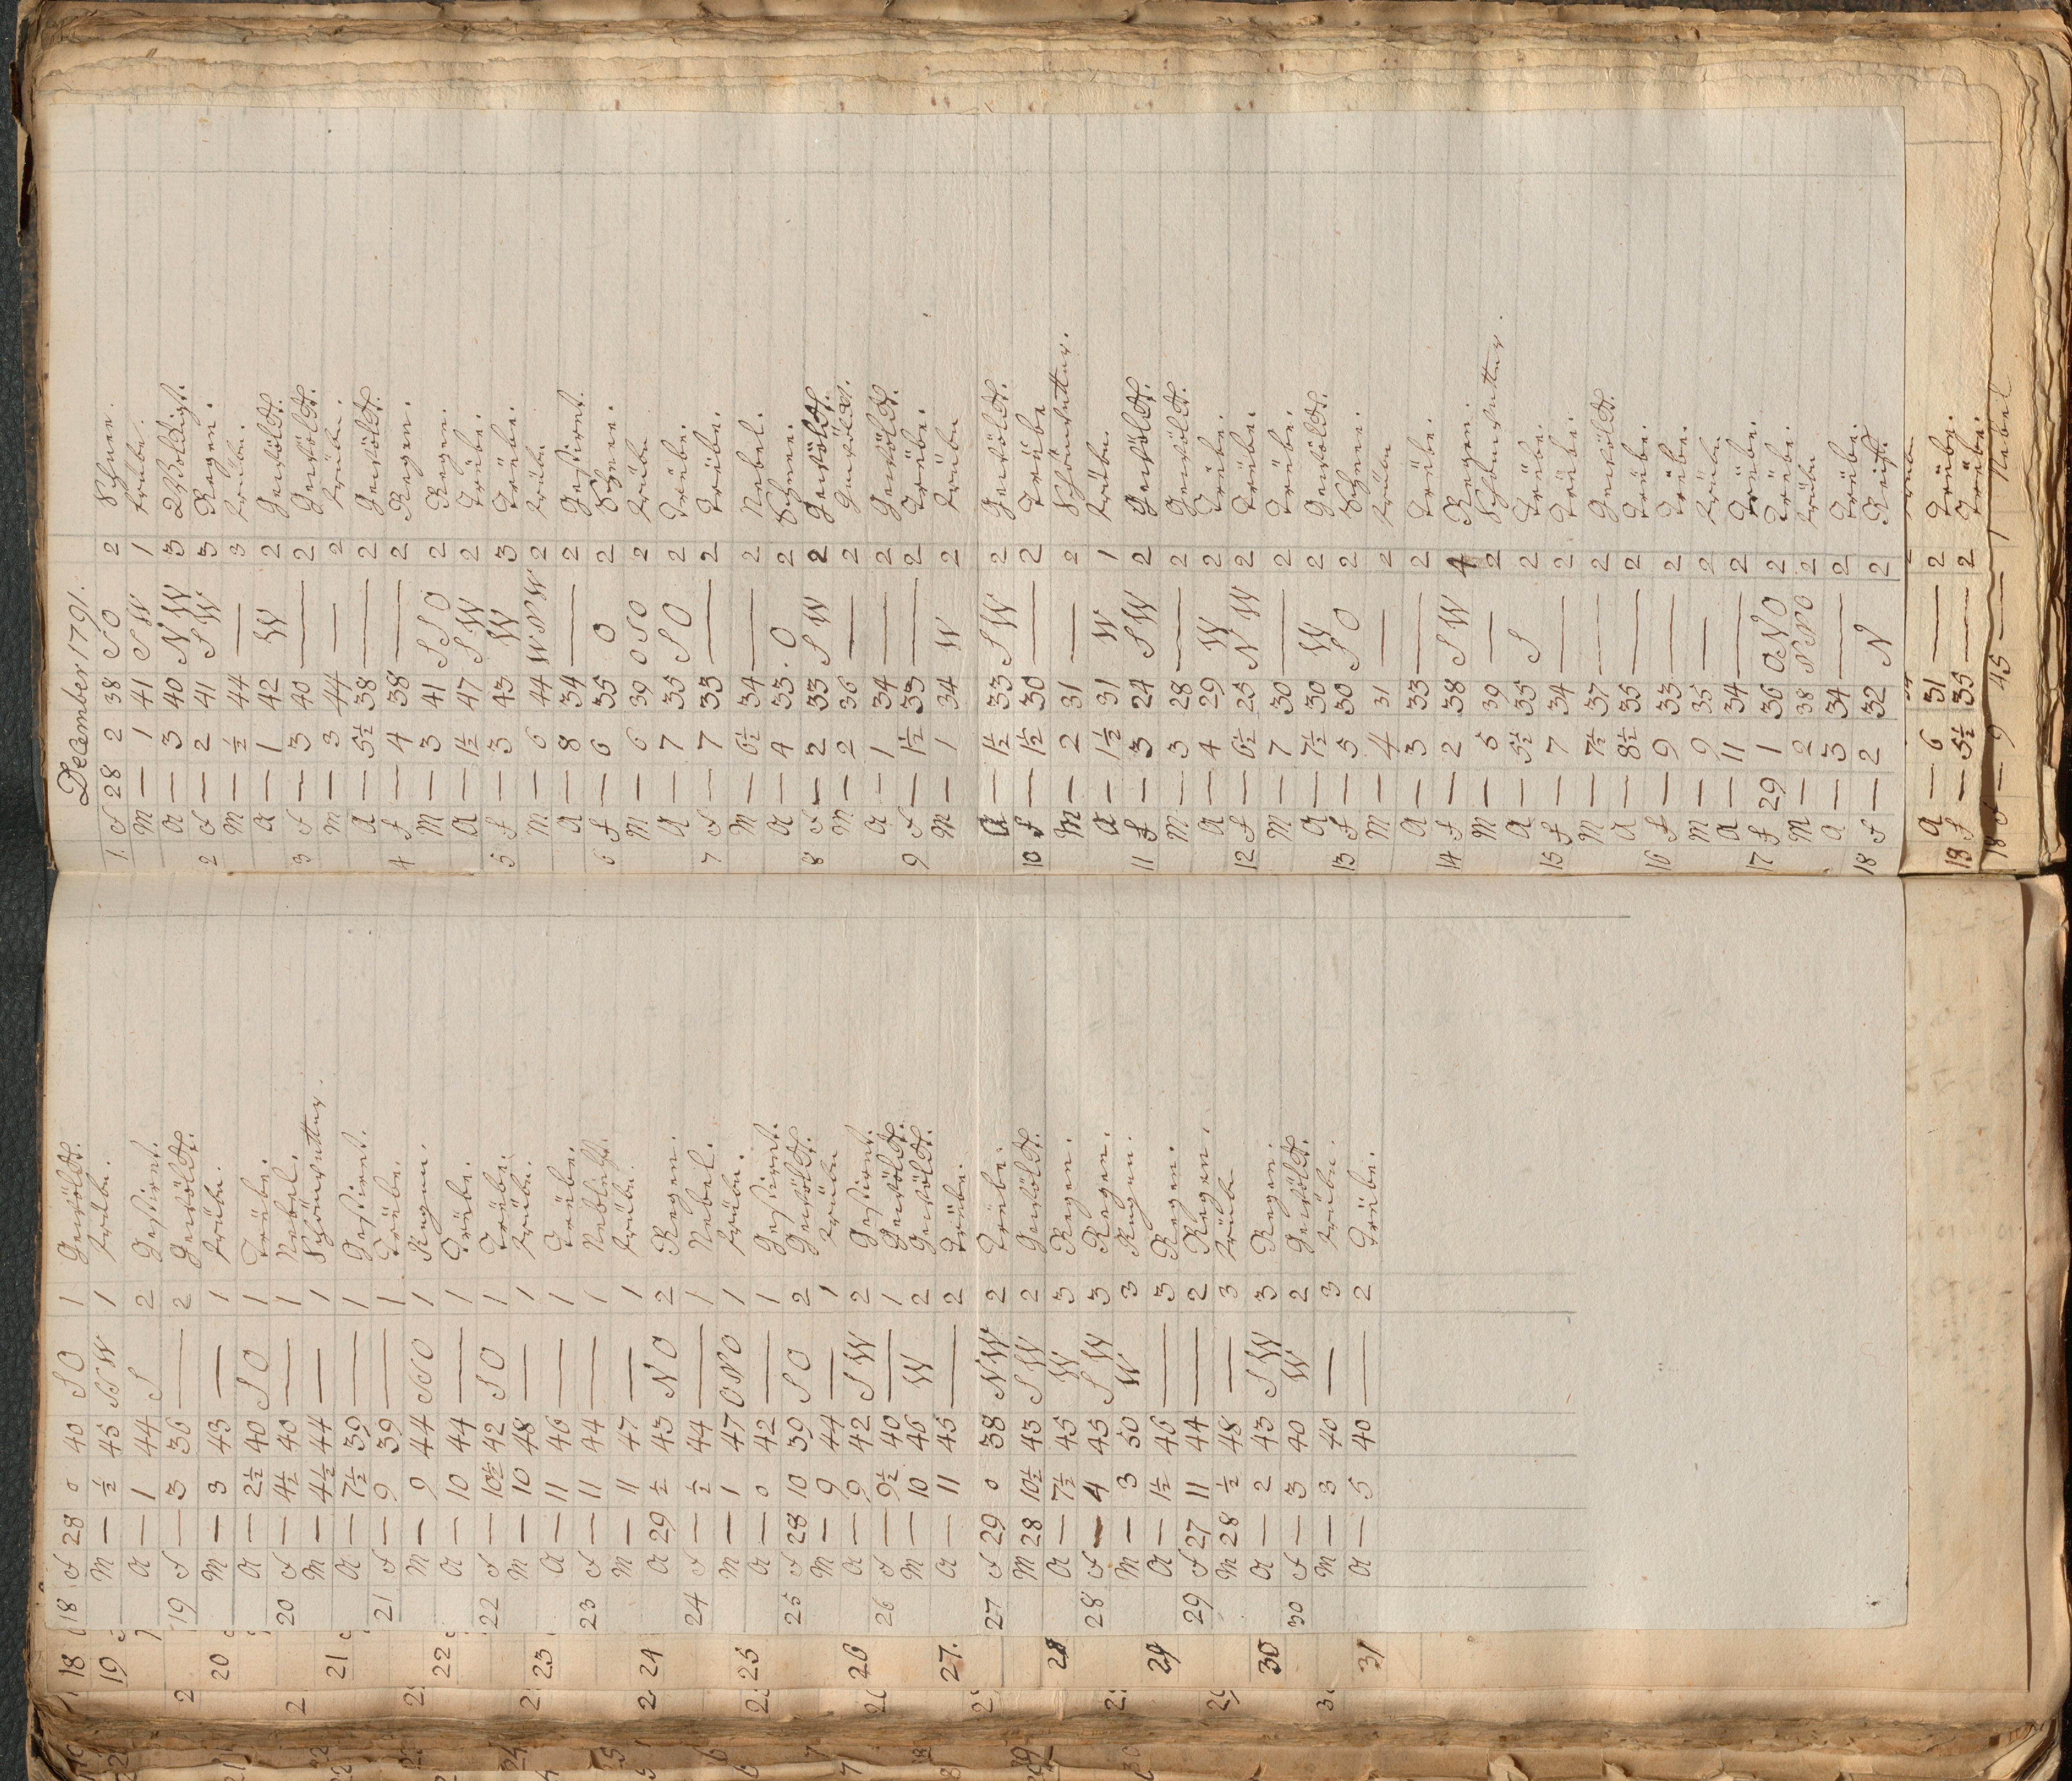 December 1791.
1. F 28 2 38 SO 2 Schnee.
M — 1 41 SW 1 trübe.
A — 3 40 NW 3
2 F — 2 41 SW 3 Regen.
M — ½ 44 — 3 trübe.
A — 1 42 W 2 Gewölckt.
3 F — 3 40 — 2 Gewölckt.
M — 3 44 — 2 trübe.
A — 5½ 38 — 2 Gewölckt.
4 F — 4 38 — 2 Regen.
M — 3 41 SSO 2 Regen.
A — 1½ 47 SW 2 Trübe.
5 F — 3 43 W 3 Trübe.
M — 6 44 WNW 2 trübe
A — 8 34 — 2 Gestirnt.
6 F — 6 35 O 2 Schnee.
M — 6 39 OSO 2 trübe
A — 7 35 SO 2 Trübe.
7 F — 7 33 — 2 Trübe.
M — 6½ 34 — 2 Nebel.
A — 4 33. O 2 Schnee.
8 F — 2 33 SW 2 Gewölckt.
M — 2 36 — 2 Gewölckt.
A — 1 34 — 2 Gewölckt.
9 F — 1½ 33 — 2 Trübe.
M — 1 34 W 2 trübe
A — 1½ 33 SW 2 Gewölckt.
10 F — 1½ 30 — 2 Trübe
M — 2 31 — 2 Schönwetter.
A — 1½ 31 W 1 trübe.
11 F — 3 24 SW 2 Gewölckt.
M — 3 28 — 2 Gewölckt.
A — 4 29 W 2 Trübe.
12 F — 6½ 25 NW 2 Trübe.
M — 7 30 — 2 Trübe.
A — 7½ 30 W 2 Gewölckt.
13 F — 5 30 SO 2 Schnee.
M — 4 31 — 2 trübe
A — 3 33 — 2 Trübe.
14 F — 2 38 SW 4 Regen.
M — 5 39 — 2 Schönwetter.
A — 5½ 35 S 2 Trübe.
15 F — 7 34 — 2 Trübe.
M — 7½ 37 — 2 Gewölckt.
A — 8½ 35 — 2 Trübe.
16 F — 9 33 — 2 Trübe.
M — 9 35 — 2 trübe
A — 11 34 — 2 Trübe.
17 F 29 1 36 ONO 2 Trübe.
M — 2 38 NNO 2 trübe
A — 3 34 — 2 Trübe.
18 F — 2 32 N 2 Reif.
A — 6 31 — 2 Trübe.
18 F — 5½ 35 — 2 Trübe.
18 F — 9 45 — 1 Nebel
18 F 28 0 40 SO 1 Gewölckt.
M — ½ 45 1 trübe.
A — 1 44 S 2 Gestirnt.
19 F — 3 36 — 2 Gewölckt.
M — 3 43 — 1 trübe.
A — 2½ 40 SO 1 Trübe.
20 F — 4½ 40 — 1 Nebel.
M — 4½ 44 — 1 Schönwetter
A — 7½ 39 — 1 Gestirnt.
21 F — 9 39 — 1 Trübe.
M — 9 44 SSO 1 Regen.
A — 10 44 — 1 Trübe.
22 F — 10½ 42 SO 1 Trübe.
M — 10 48 — 1 trübe.
A — 11 46 — 1 Trübe.
23 F — 11 44 — 1 Neblicht.
M — 11 47 — 1 trübe.
A 29 ½ 43 NO 2 Regen.
24 F — ½ 44 — 1 Nebel.
M — 1 47 ONO 1 trübe.
A — 0 42 — 1 Gestirnt.
25 F 28 10 39 SO 2 Gewölckt.
M — 9 44 — 1 trübe
A — 9 42 SW 2 Gestirnt.
26 F — 9½ 40 — 1 Gewölckt.
M — 10 46 W 2 Gewölckt.
A — 11 45 — 2 Trübe.
27 F 29 0 38 NW 2 Trübe.
M 28 10½ 43 SW 2 Gewölckt.
A — 7½ 45 W 3 Regen.
28 F — 4 45 SW 3 Regen.
M — 3 50 W 3 Regen.
A — 1½ 46 — 3 Regen.
29 F 27 11 44 — 2 Regen.
M 28 ½ 48 — 3 trübe
A — 2 43 SW 3 Regen.
30 F — 3 40 W 2 Gewölckt.
M — 3 40 — 3 trübe.
A — 5 40 — 2 Trübe.
18
19
20
21
22
23
24
25
26
27.
28
29
30
31